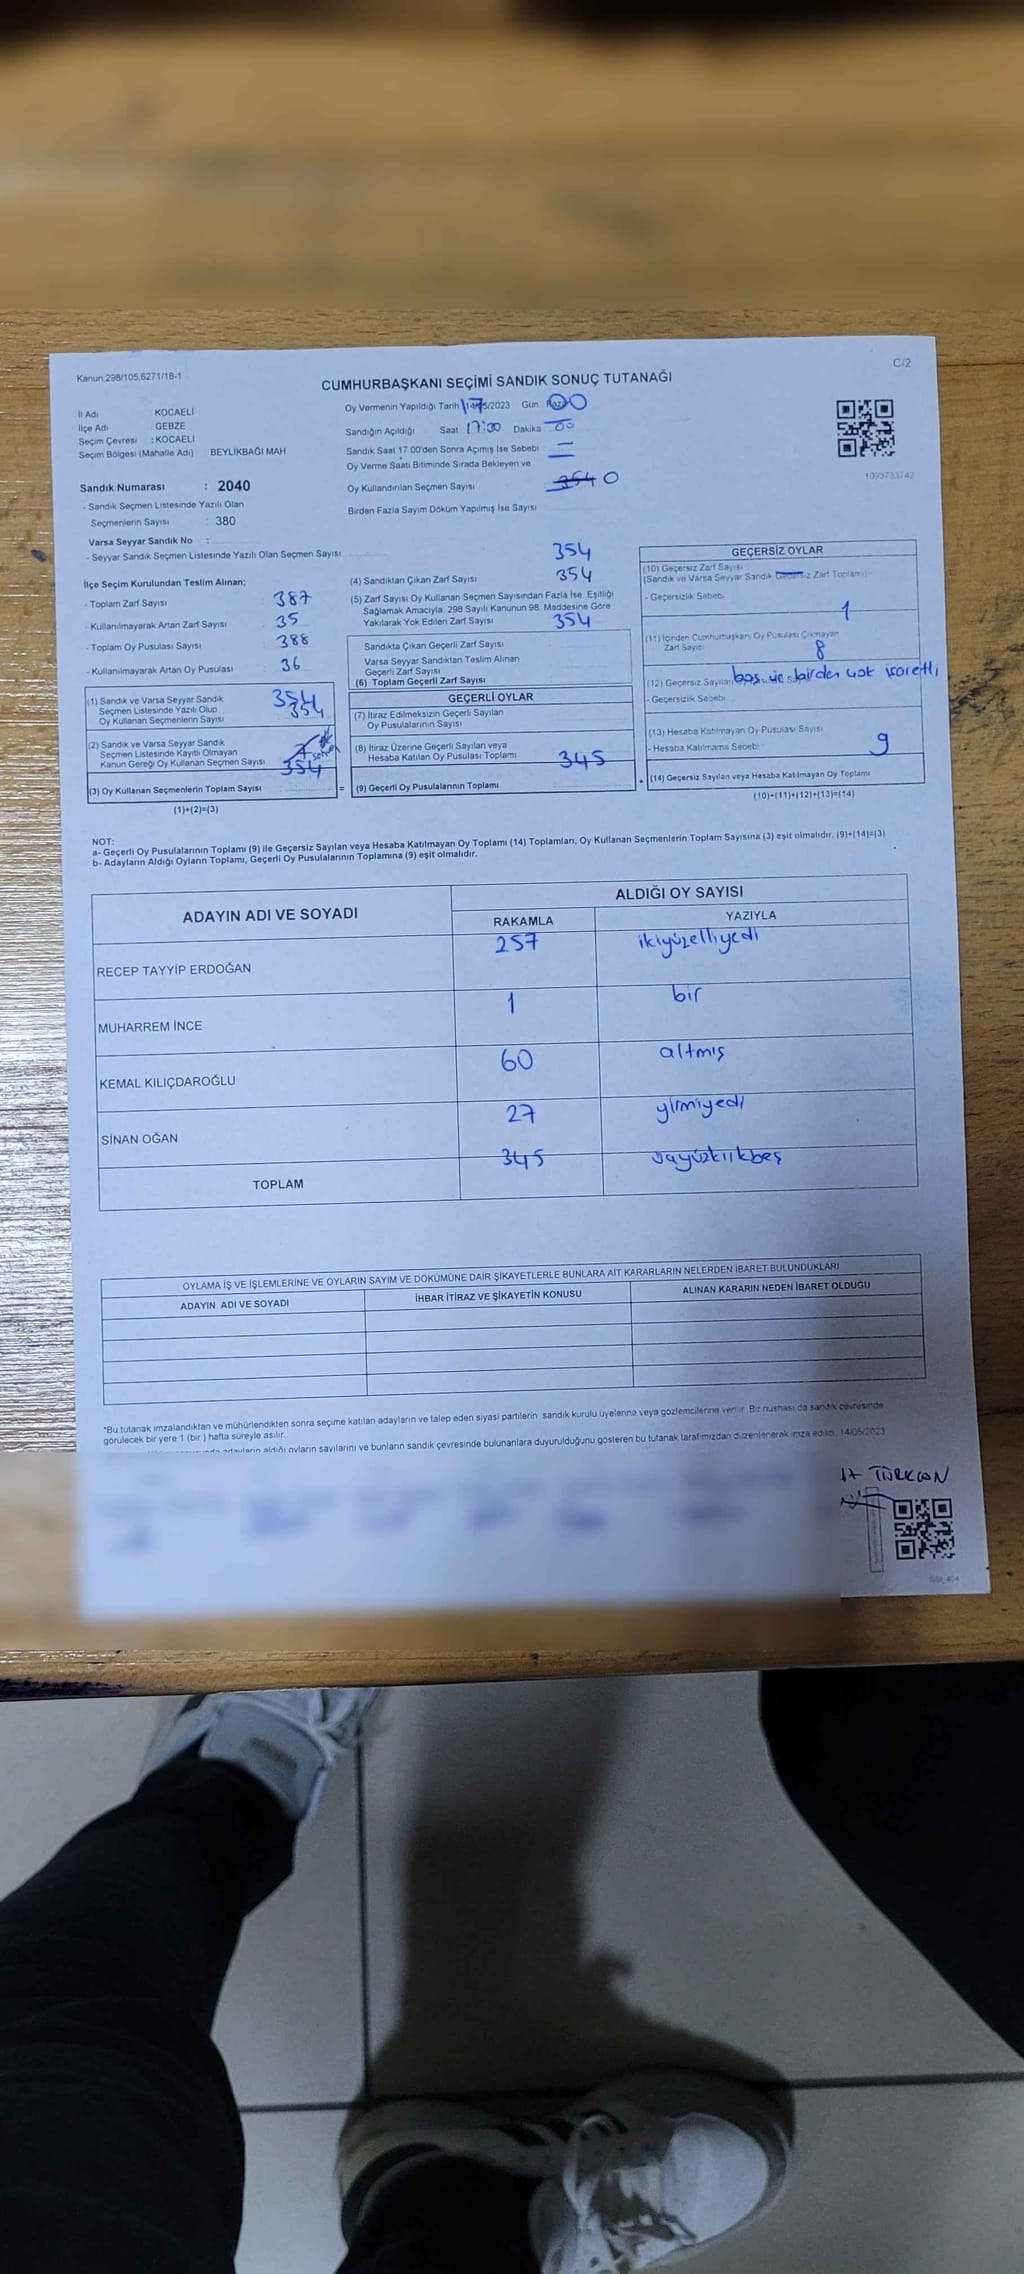 Kanun,298/105,6271/18-1
C/2
CUMHURBAŞKANI SEÇİMİ SANDIK SONUÇ TUTANAĞI
İl Adı KOCAELİ
İlçe Adı : GEBZE
Seçim Çevresi : KOCAELİ
Seçim Bölgesi (Mahalle Adı) : BEYLİKBAĞI MAH
Sandık Numarası : 2040
- Sandık Seçmen Listesinde Yazılı Olan
Seçmenlerin Sayısı : 380
Varsa Seyyar Sandık No :
- Seyyar Sandık Seçmen Listesinde Yazılı Olan Seçmen Sayısı
Oy Vermenin Yapıldığı Tarih 14/05/2023 Gün :
Sandığın Açıldığı Saat 17:30 Dakika 00
Sandık Saat 17:00'den Sonra Açımış İse Sebebi :
Oy Verme Saati Bitiminde Sırada Bekleyen ve
Oy Kullandırılan Seçmen Sayısı 354 0
Birden Fazla Sayım Döküm Yapılmış İse Sayısı
1090733742
İlçe Seçim Kurulundan Teslim Alınan;
- Toplam Zarf Sayısı : 387
- Kullanılmayarak Artan Zarf Sayısı : 35
- Toplam Oy Pusulası Sayısı : 388
- Kullanılmayarak Artan Oy Pusulası : 36
(1) Sandık ve Varsa Seyyar Sandık
Seçmen Listesinde Yazılı Olup
Oy Kullanan Seçmenlerin Sayısı
354
354
(2) Sandık ve Varsa Seyyar Sandık
Seçmen Listesinde Kayıtlı Olmayan
Kanun Gereği Oy Kullanan Seçmen Sayısı
354
(3) Oy Kullanan Seçmenlerin Toplam Sayısı :
(1)+(2)=(3)
354
(4) Sandıktan Çıkan Zarf Sayısı 354
(5) Zarf Sayısı Oy Kullanan Seçmen Sayısından Fazla İse, Eşitliği
Sağlamak Amacıyla, 298 Sayılı Kanunun 98. Maddesine Göre
Yakılarak Yok Edilen Zarf Sayısı 354
Sandıkta Çıkan Geçerli Zarf Sayısı
Varsa Seyyar Sandıktan Teslim Alınan
Geçerli Zarf Sayısı
(6) Toplam Geçerli Zarf Sayısı
GEÇERLİ OYLAR
(7) İtiraz Edilmeksizin Geçerli Sayılan
Oy Pusulalarının Sayısı
(8) İtiraz Üzerine Geçerli Sayılan veya
Hesaba Katılan Oy Pusulası Toplamı 345
= (9) Geçerli Oy Pusulalarının Toplamı
GEÇERSİZ OYLAR
(10) Geçersiz Zarf Sayısı
(Sandık ve Varsa Seyyar Sandık Geçersiz Zarf Toplamı)
- Geçersizlik Sebebi
1
(11) İçinden Cumhurbaşkanı Oy Pusulası Çıkmayan
Zarf Sayısı 8
(12) Geçersiz Sayılan
- Geçersizlik Sebebi
(13) Hesaba Katılmayan Oy Pusulası Sayısı
- Hesaba Katılmama Sebebi 9
+ (14) Geçersiz Sayılan veya Hesaba Katılmayan Oy Toplamı
(10)+(11)+(12)+(13)=(14)
NOT:
a- Geçerli Oy Pusulalarının Toplamı (9) ile Geçersiz Sayılan veya Hesaba Katılmayan Oy Toplamı (14) Toplamları, Oy Kullanan Seçmenlerin Toplam Sayısına (3) eşit olmalıdır. (9)+(14)=(3)
b- Adayların Aldığı Oyların Toplamı, Geçerli Oy Pusulalarının Toplamına (9) eşit olmalıdır.
ADAYIN ADI VE SOYADI
ALDIĞI OY SAYISI
RAKAMLA YAZIYLA
RECEP TAYYİP ERDOĞAN 257 ikiyüzelliyedi
MUHARREM İNCE 1 bir
KEMAL KILIÇDAROĞLU 60 altmış
SİNAN OĞAN 27 yirmiyedi
TOPLAM 345
OYLAMA İŞ VE İŞLEMLERİNE VE OYLARIN SAYIM VE DÖKÜMÜNE DAİR ŞİKAYETLERLE BUNLARA AİT KARARLARIN NELERDEN İBARET BULUNDUKLARI
ADAYIN ADI VE SOYADI İHBAR İTİRAZ VE ŞİKAYETİN KONUSU ALINAN KARARIN NEDEN İBARET OLDUĞU
*Bu tutanak imzalandıktan ve mühürlendikten sonra seçime katılan adayların ve talep eden siyasi partilerin sandık kurulu üyelerine veya gözlemcilerine verilir. Bir nüshası da sandık çevresinde
görülecek bir yere 1 (bir) hafta süreyle asılır.
adayların aldığı oyların sayılarını ve bunların sandık çevresinde bulunanlara duyurulduğunu gösteren bu tutanak tarafımızdan düzenlenerek imza edildi. 14/05/2023